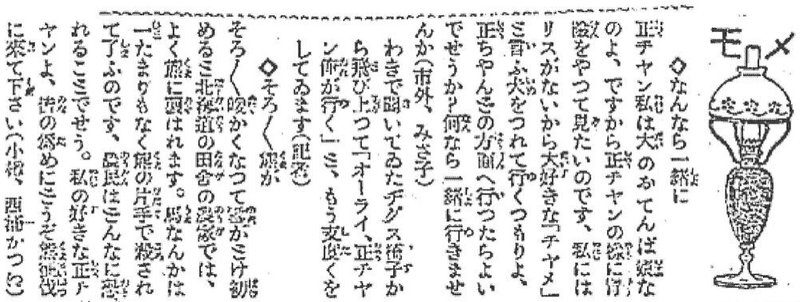 メモ
◇なんなら一緒に
正チャン私は大のおてんば娘な
のよ、ですから正チャンの様に冒
険をやつて見たいのです、私には
リスがないから大好きな「チヤメ」
と言ふ犬をつれて行くつもりよ、
正ちやんどの方面へ行つたらよい
でせうか？何なら一緒に行きませ
んか（市外、みさ子）
わきで聞いてゐたヂグス椅子か
ら飛び上つて「オーライ、正チヤ
ン俺が行く」と、もう支度くを
してゐます（記者）
◇そろ〱熊が
そろ〱暖かくなつて雪がとけ初
めると北海道の田舎の農家では、
よく熊に襲はれます。馬なんかは
一たまりもなく熊の片手で殺され
て了ふのです、農民はどんなに恐
れることでせう。私の好きな正チ
ヤンよ、皆の為めにどうぞ熊征伐
に来て下さい（小樽、西浦かつを）